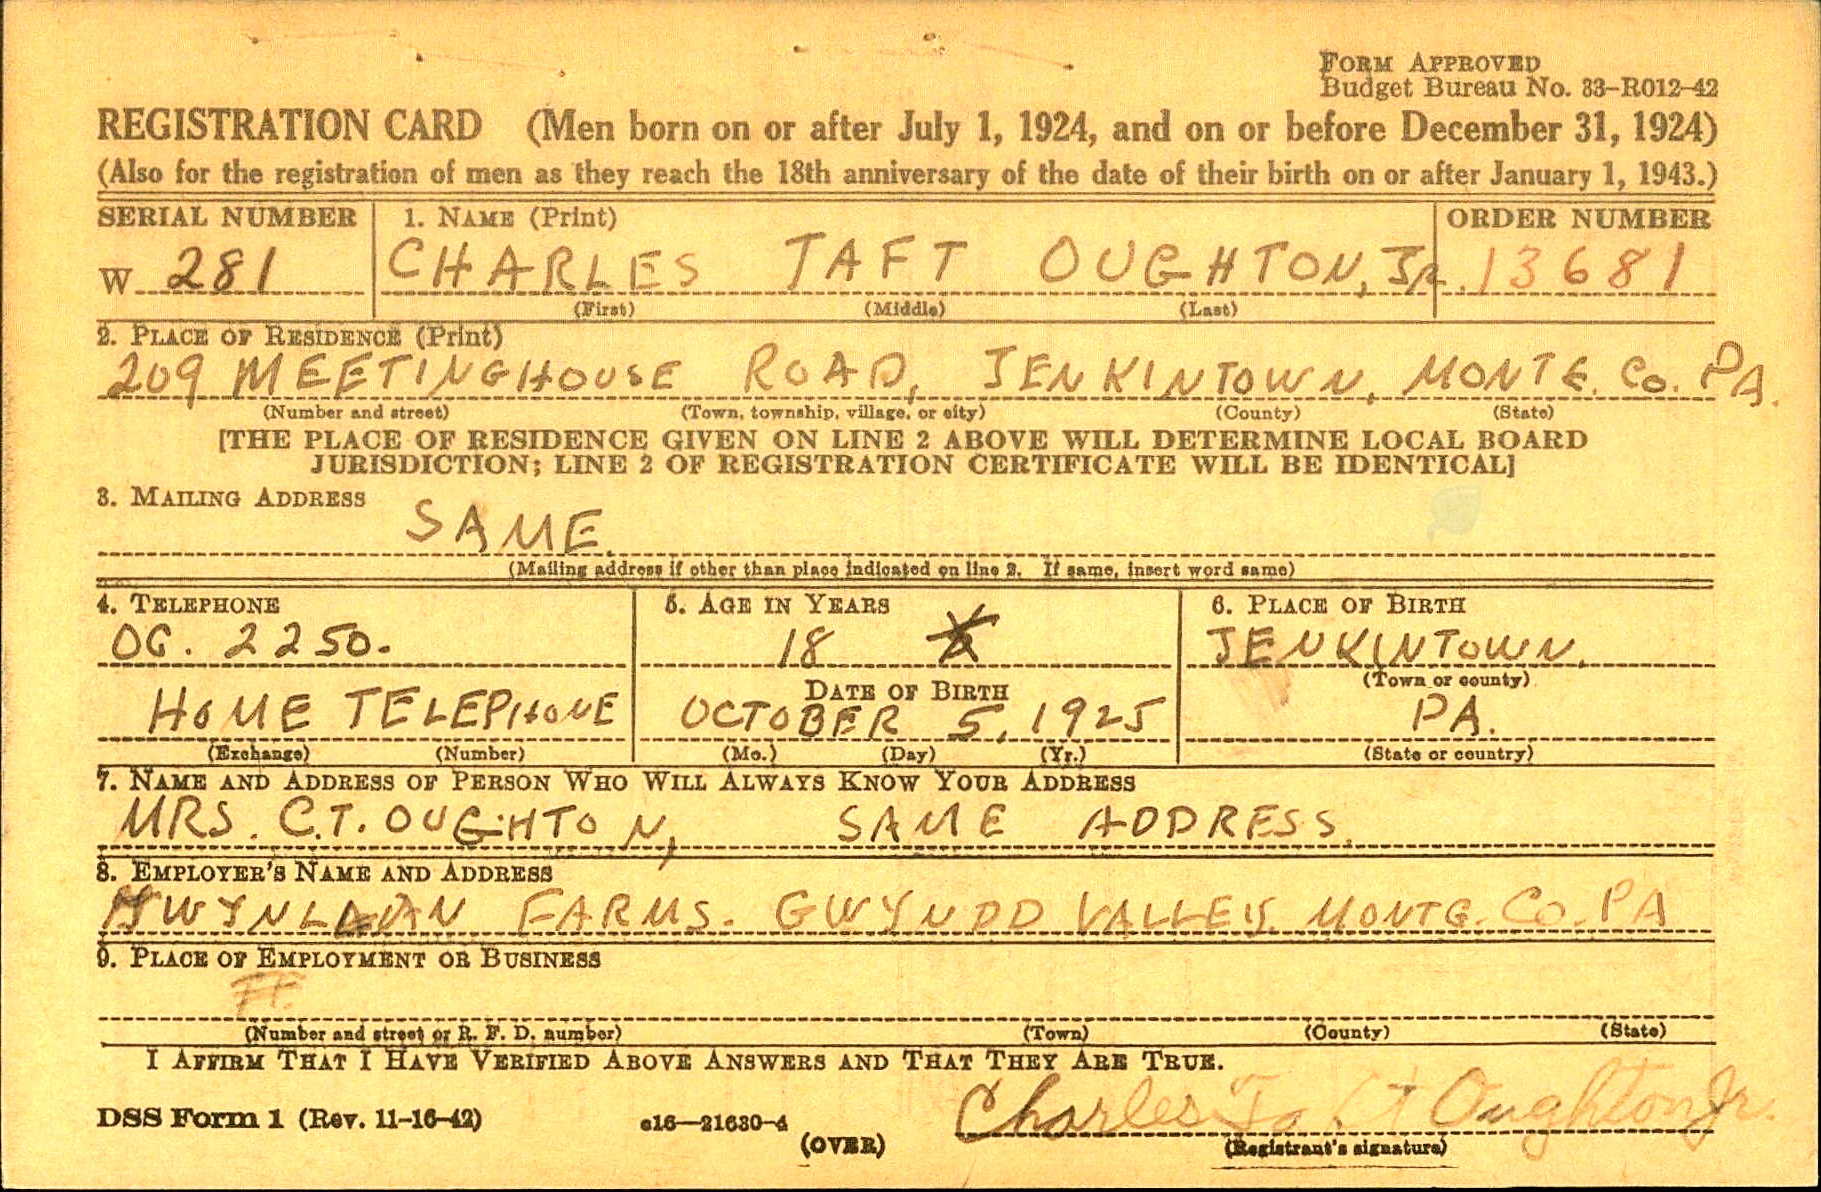 FORM APPROVED
Budget Bureau No. 33-R012-42
REGISTRATION CARD (Men born on or after July 1, 1924, and on or before December 31, 1924)
(Also for the registration of men as they reach the 18th anniversary of the date of their birth on or after January 1, 1943.)
SERIAL NUMBER 1. NAME (Print) ORDER NUMBER
W 281 CHARLES TAFT OUGHTON, JR. 13681
(First) (Middle) (Last)
2. PLACE OF RESIDENCE (Print)
209 MEETINGHOUSE ROAD, JENKINTOWN, MONTG. CO. PA.
(Number and street) (Town, township, village, or city) (County) (State)
[THE PLACE OF RESIDENCE GIVEN ON LINE 2 ABOVE WILL DETERMINE LOCAL BOARD
JURISDICTION; LINE 2 OF REGISTRATION CERTIFICATE WILL BE IDENTICAL]
3. MAILING ADDRESS
SAME.
(Mailing address if other than place indicated on line 2. If same, insert word same)
4. TELEPHONE 5. AGE IN YEARS 6. PLACE OF BIRTH
OG. 2250. 18 JENKINTOWN.
(Town or county)
DATE OF BIRTH
HOME TELEPHONE OCTOBER 5, 1925 PA.
(Exchange) (Number) (Mo.) (Day) (Yr.) (State or country)
7. NAME AND ADDRESS OF PERSON WHO WILL ALWAYS KNOW YOUR ADDRESS
MRS. C.T. OUGHTON, SAME ADDRESS.
8. EMPLOYER'S NAME AND ADDRESS
FARMS. GWYNDD VALLEY. MONTG. CO. PA
9. PLACE OF EMPLOYMENT OR BUSINESS
(Number and street or R. F. D. number) (Town) (County) (State)
I AFFIRM THAT I HAVE VERIFIED ABOVE ANSWERS AND THAT THEY ARE TRUE.
DSS Form 1 (Rev. 11-16-42) c16—21630-4 Charles Taft Oughton Jr.
(OVER) (Registrant's signature)